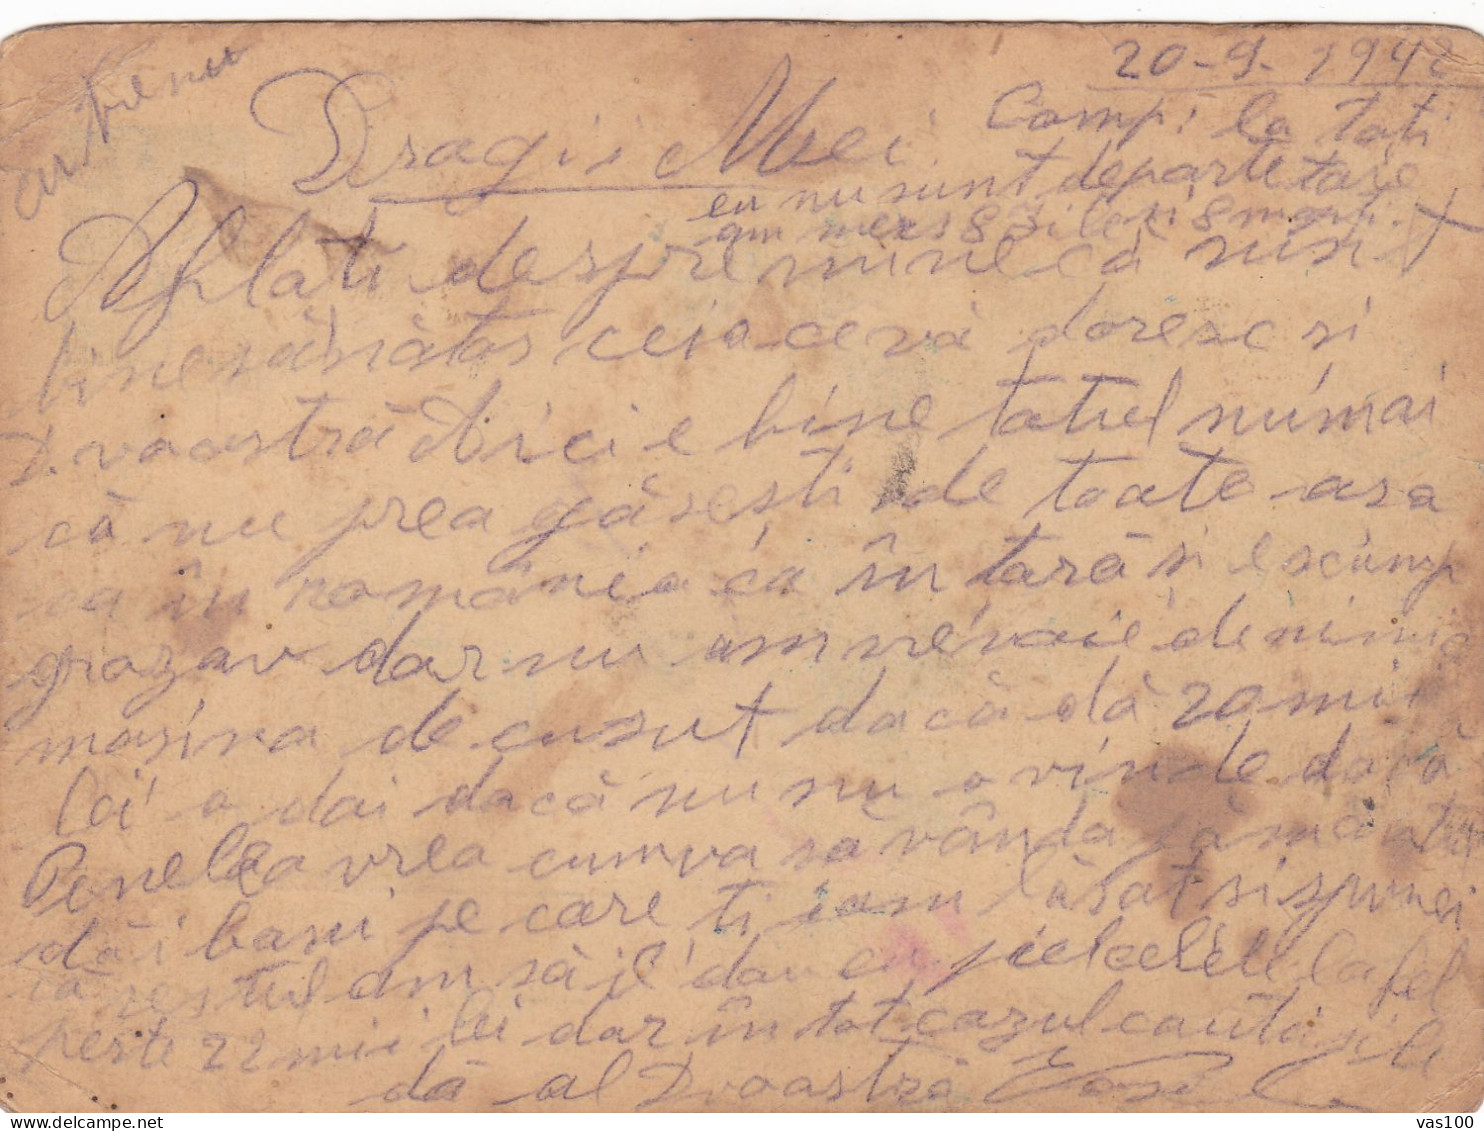 20-9-1942
Dragii Mei
Comp: la toti
eu nu sunt departe tare
am mers 8 zile si 8 nopti
Aflati despre mine că sunt
bine sănătos ceia ce vă doresc si
D. voastră Aici e bine totul numai
că nu prea găsesti de toate asa
ca în românia ca în tară si e scump
grozav dar nu am nevoie de nimic
masina de cusut dacă dă 20 mii
lei o dai dacă nu nu o vinde dacă
Penelea vrea cumva să vânda
dă i banii pe care ti iam lăsat si spunei
că restul am să il dau eu pielcelele la fel
peste 22 mii lei dar în tot cazul
dă al Dvoastră
vas100